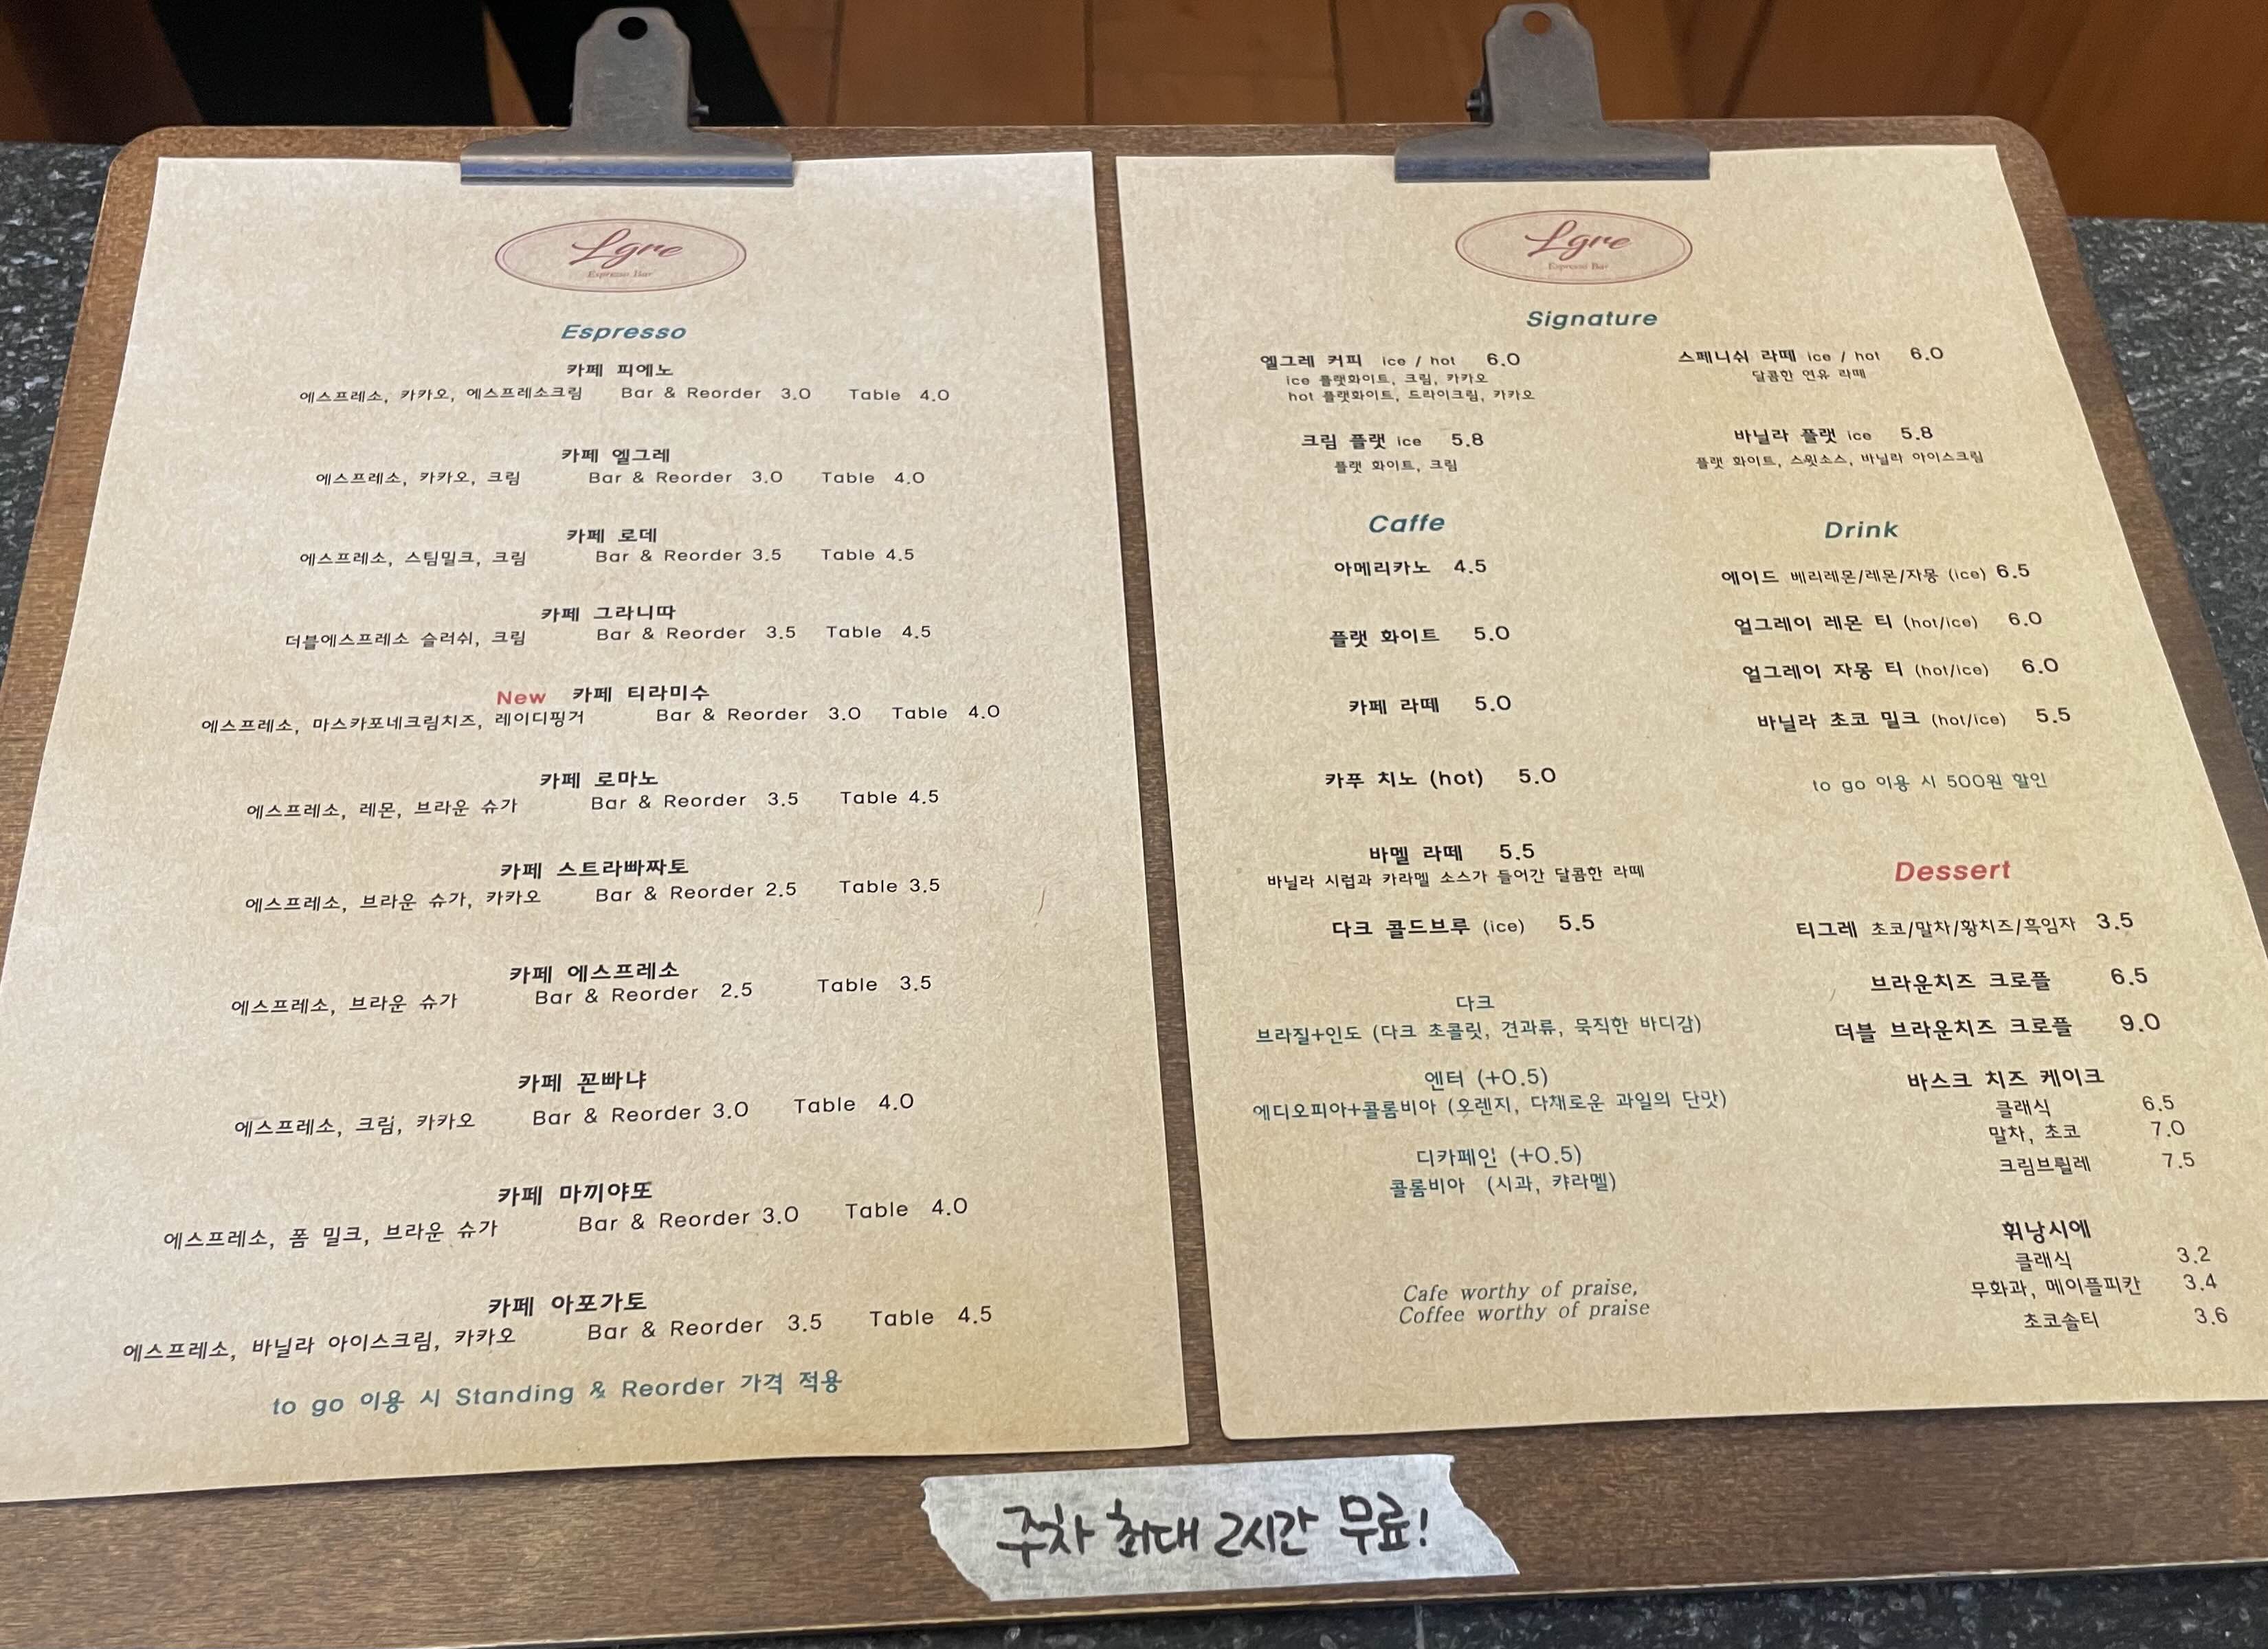 Lgre
Espresso Bar
Espresso
카페 피에노
에스프레소, 카카오, 에스프레소크림 Bar & Reorder 3.0 Table 4.0
카페 엘그레
에스프레소, 카카오, 크림 Bar & Reorder 3.0 Table 4.0
카페 로데
에스프레소, 스팀밀크, 크림 Bar & Reorder 3.5 Table 4.5
카페 그라니따
더블에스프레소 슬러쉬, 크림 Bar & Reorder 3.5 Table 4.5
New 카페 티라미수
에스프레소, 마스카포네크림치즈, 레이디핑거 Bar & Reorder 3.0 Table 4.0
카페 로마노
에스프레소, 레몬, 브라운 슈가 Bar & Reorder 3.5 Table 4.5
카페 스트라빠짜토
에스프레소, 브라운 슈가, 카카오 Bar & Reorder 2.5 Table 3.5
카페 에스프레소
에스프레소, 브라운 슈가 Bar & Reorder 2.5 Table 3.5
카페 꼰빠냐
에스프레소, 크림, 카카오 Bar & Reorder 3.0 Table 4.0
카페 마끼야또
에스프레소, 폼 밀크, 브라운 슈가 Bar & Reorder 3.0 Table 4.0
카페 아포가토
에스프레소, 바닐라 아이스크림, 카카오 Bar & Reorder 3.5 Table 4.5
to go 이용 시 Standing & Reorder 가격 적용
Lgre
Espresso Bar
Signature
엘그레 커피 ice / hot 6.0
ice 플랫화이트, 크림, 카카오
hot 플랫화이트, 드라이크림, 카카오
스페니쉬 라떼 ice / hot 6.0
달콤한 연유 라떼
크림 플랫 ice 5.8
플랫 화이트, 크림
바닐라 플랫 ice 5.8
플랫 화이트, 스윗소스, 바닐라 아이스크림
Caffe
아메리카노 4.5
플랫 화이트 5.0
카페 라떼 5.0
카푸 치노 (hot) 5.0
바멜 라떼 5.5
바닐라 시럽과 카라멜 소스가 들어간 달콤한 라떼
다크 콜드브루 (ice) 5.5
다크
브라질+인도 (다크 초콜릿, 견과류, 묵직한 바디감)
엔터 (+0.5)
에디오피아+콜롬비아 (오렌지, 다채로운 과일의 단맛)
디카페인 (+0.5)
콜롬비아 (시과, 캬라멜)
Cafe worthy of praise,
Coffee worthy of praise
Drink
에이드 베리레몬/레몬/자몽 (ice) 6.5
얼그레이 레몬 티 (hot/ice) 6.0
얼그레이 자몽 티 (hot/ice) 6.0
바닐라 초코 밀크 (hot/ice) 5.5
to go 이용 시 500원 할인
Dessert
티그레 초코/말차/황치즈/흑임자 3.5
브라운치즈 크로플 6.5
더블 브라운치즈 크로플 9.0
바스크 치즈 케이크
클래식 6.5
말차, 초코 7.0
크림브륄레 7.5
휘낭시에
클래식 3.2
무화과, 메이플피칸 3.4
초코솔티 3.6
주차 최대 2시간 무료!